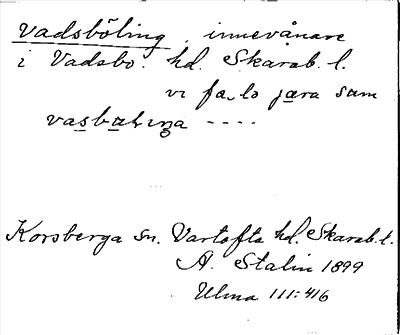 Vadsböling, innevånare
i Vadsbo. hd. Skarab. l.
vi fa lo jara sam
vasbaliŋa ----
Korsberga sn. Vartofta hd. Skarab. l.
A. Stalin 1899
Ulma 111:416